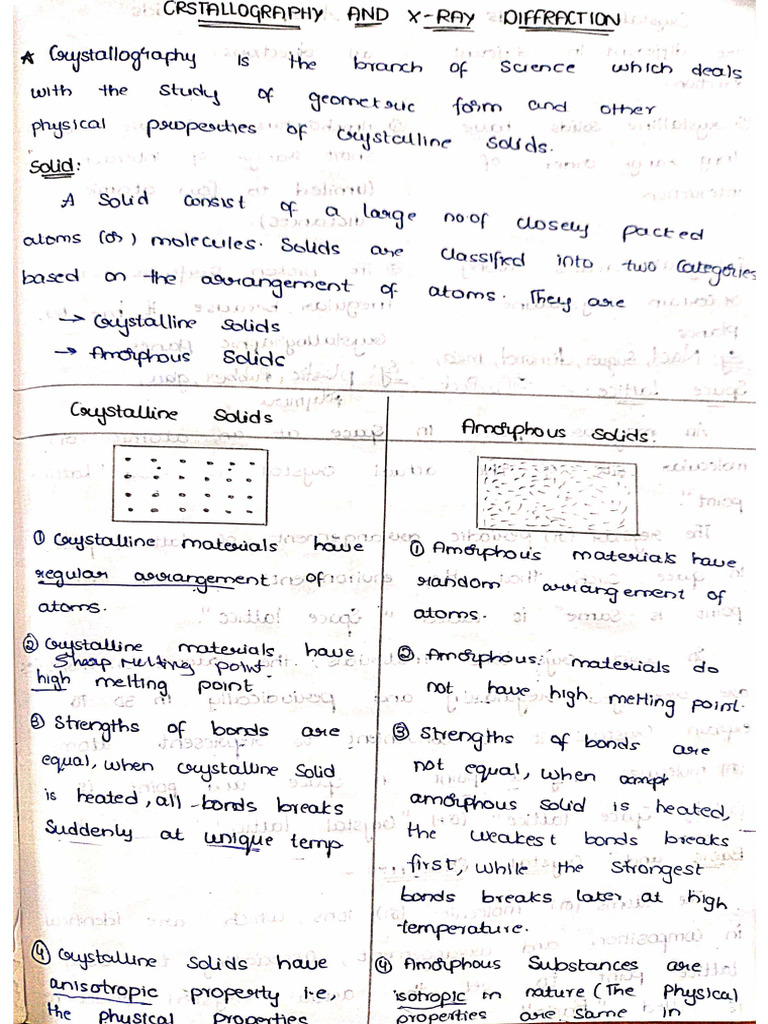 CRSTALLOGRAPHY AND X-RAY DIFFRACTION
* Crystallography is the branch of science which deals
with the study of geometric form and other
physical properties of crystalline solids.
Solid:
A solid consist of a large no of closely packed
atoms (or) molecules. Solids are classified into two categories
based on the arrangement of atoms. They are
→ Crystalline solids
→ Amorphous solids
Crystalline solids
① Crystalline materials have
regular arrangement of
atoms.
② Crystalline materials have
Sharp melting point.
high melting point
③ Strengths of bonds are
equal, when crystalline solid
is heated, all bonds breaks
suddenly at unique temp
④ Crystalline solids have
anisotropic property i.e,
the physical properties
Amorphous solids.
① Amorphous materials have
random arrangement of
atoms.
② Amorphous materials do
not have high melting point.
③ Strengths of bonds are
not equal, when
amorphous solid is heated,
the weakest bonds breaks
first, while the strongest
bonds breaks later at high
temperature.
④ Amorphous Substances are
isotropic in nature (The physical
properties are same in